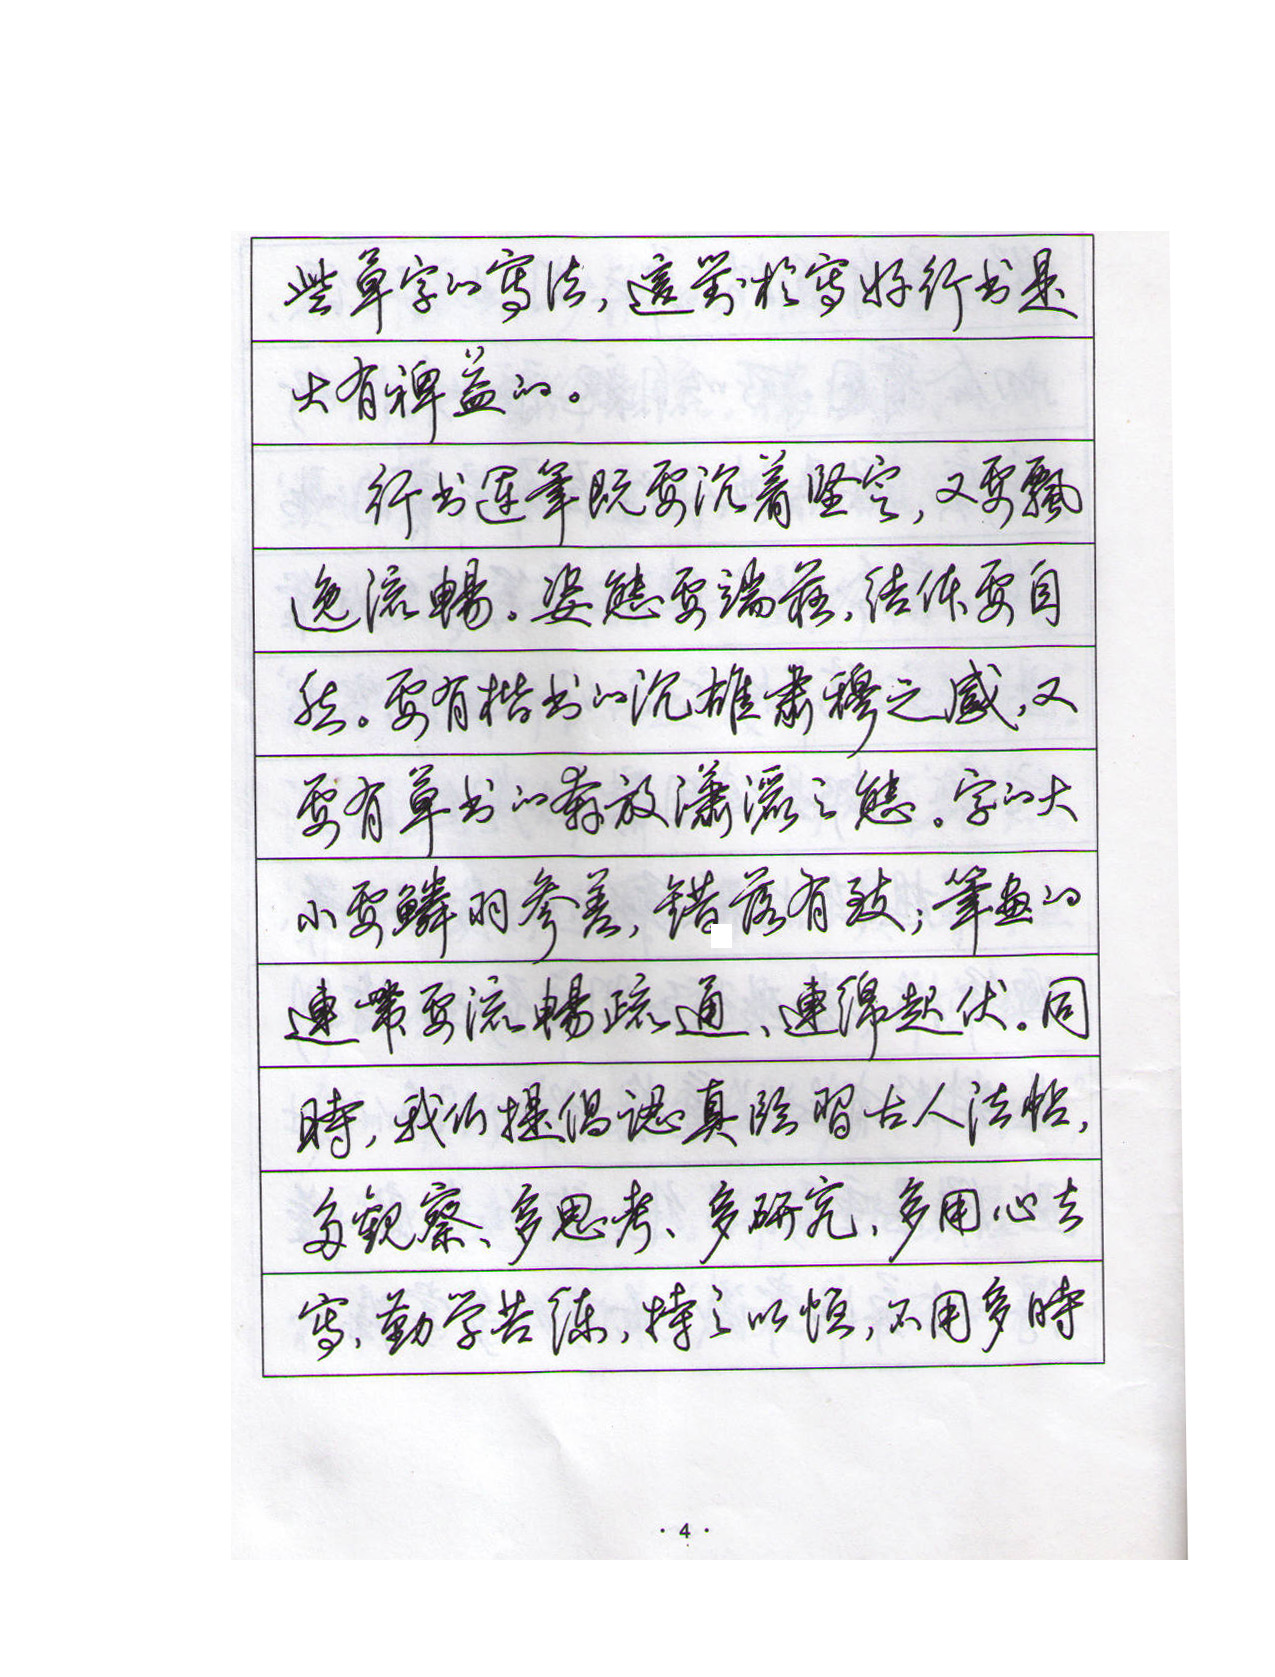 些草字的寫法，這對於寫好行书是
大有裨益的。
行书運筆既要沉着坚定，又要飄
逸流暢。姿態要端莊，结体要自
然。要有楷书的沉雄肅穆之感，又
要有草书的奔放瀟灑之態。字的大
小要鱗羽参差，错落有致；筆畫的
連帶要流暢疏通、連綿起伏。同
時，我们提倡認真临習古人法帖，
多觀察、多思考、多研究、多用心去
寫，勤学苦练，持之以恒，不用多時
· 4 ·